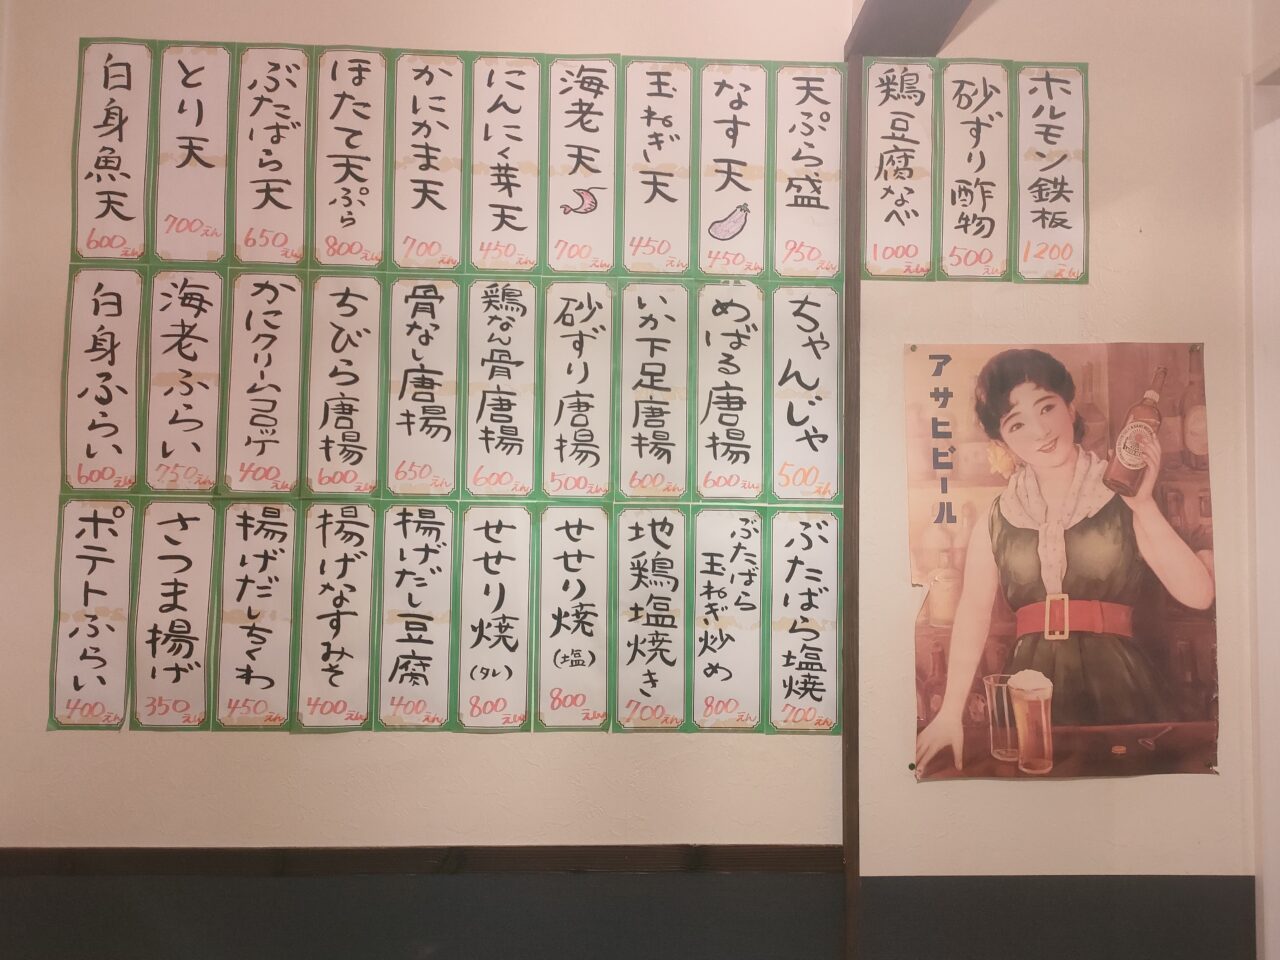 ホルモン鉄板 1200えん
砂ずり酢物 500えん
鶏豆腐なべ 1000えん
天ぷら盛 950えん
なす天 450えん
玉ねぎ天 450えん
海老天 700えん
にんにく芽天 450えん
かにかま天 700えん
ほたて天ぷら 800えん
ぶたばら天 650えん
とり天 700えん
白身魚天 600えん
ちゃんじゃ 500えん
めばる唐揚 600えん
いか下足唐揚 600えん
砂ずり唐揚 500えん
鶏なん骨唐揚 600えん
骨なし唐揚 650えん
ちびら唐揚 600えん
かにクリームコロッケ 400えん
海老ふらい 750えん
白身ふらい 600えん
ぶたばら塩焼 700えん
ぶたばら玉ねぎ炒め 800えん
地鶏塩焼き 700えん
せせり焼(塩) 800えん
せせり焼(タレ) 800えん
揚げだし豆腐 400えん
揚げなすみそ 400えん
揚げだしちくわ 450えん
さつま揚げ 350えん
ポテトふらい 400えん
アサヒビール